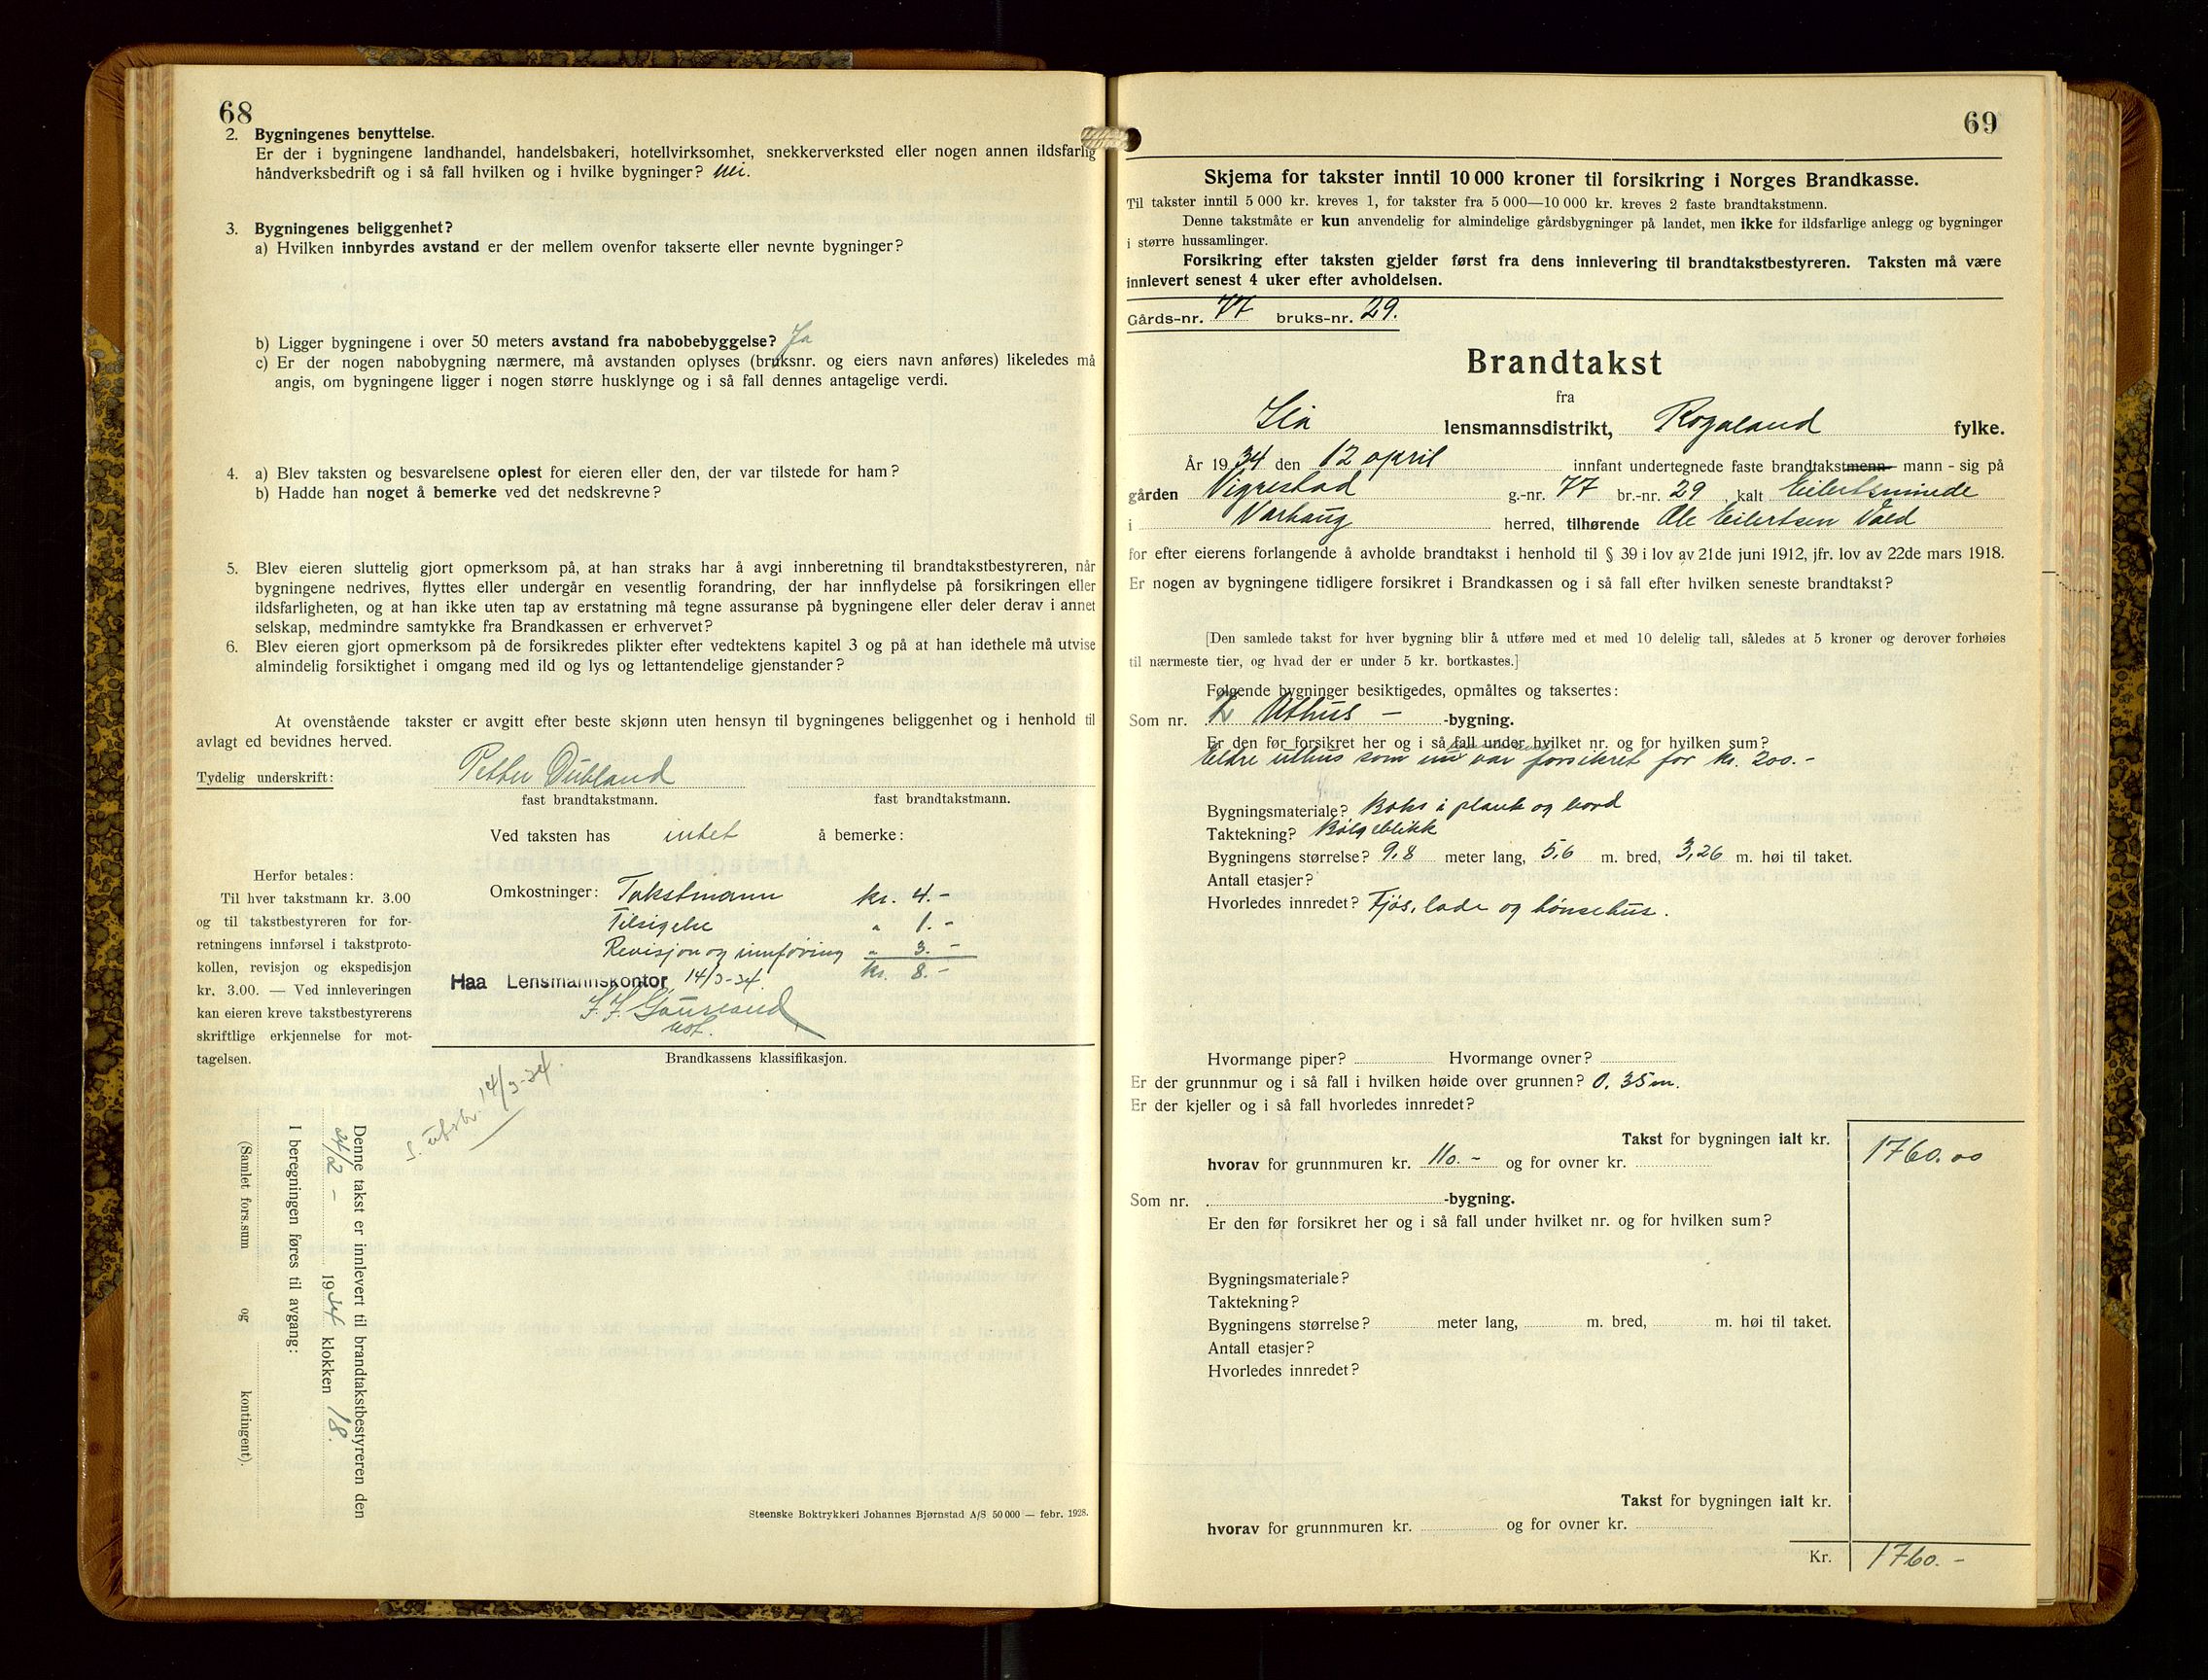 68
2. Bygningenes benyttelse.
Er der i bygningene landhandel, handelsbakeri, hotellvirksomhet, snekkerverksted eller nogen annen ildsfarlig
håndverksbedrift og i så fall hvilken og i hvilke bygninger? Nei.
3. Bygningenes beliggenhet?
a) Hvilken innbyrdes avstand er der mellem ovenfor takserte eller nevnte bygninger?
b) Ligger bygningene i over 50 meters avstand fra nabobebyggelse? Ja
c) Er der nogen nabobygning nærmere, må avstanden oplyses (bruksnr. og eiers navn anføres) likeledes må
angis, om bygningene ligger i nogen større husklynge og i så fall dennes antagelige verdi.
4. a) Blev taksten og besvarelsene oplest for eieren eller den, der var tilstede for ham?
b) Hadde han noget å bemerke ved det nedskrevne?
5. Blev eieren sluttelig gjort opmerksom på, at han straks har å avgi innberetning til brandtakstbestyreren, når
bygningene nedrives, flyttes eller undergår en vesentlig forandring, der har innflydelse på forsikringen eller
ildsfarligheten, og at han ikke uten tap av erstatning må tegne assuranse på bygningene eller deler derav i annet
selskap, medmindre samtykke fra Brandkassen er erhvervet?
6. Blev eieren gjort opmerksom på de forsikredes plikter efter vedtektens kapitel 3 og på at han idethele må utvise
almindelig forsiktighet i omgang med ild og lys og lettantendelige gjenstander?
At ovenstående takster er avgitt efter beste skjønn uten hensyn til bygningenes beliggenhet og i henhold til
avlagt ed bevidnes herved.
Tydelig underskrift: Petter Dubland
fast brandtakstmann. fast brandtakstmann.
Ved taksten has intet å bemerke:
Herfor betales:
Til hver takstmann kr. 3.00
og til takstbestyreren for for-
retningens innførsel i takstproto-
kollen, revisjon og ekspedisjon
kr. 3.00. — Ved innleveringen
kan eieren kreve takstbestyrerens
skriftlige erkjennelse for mot-
tagelsen.
Omkostninger: Takstmann kr. 4.-
Tilsigelse " 1.-
Revisjon og innføring " 3.-
kr. 8.-
Haa Lensmannskontor, 14/3-34.
Brandkassens klassifikasjon.
14/3-34.
Denne takst er innlevert til brandtakstbestyreren den
24/2 - 1934 klokken 18.
I beregningen føres til avgang:
(Samlet fors.sum og kontingent).
Steenske Boktrykkeri Johannes Bjørnstad A/S 50 000 — febr. 1928.
69
Skjema for takster inntil 10 000 kroner til forsikring i Norges Brandkasse.
Til takster inntil 5 000 kr. kreves 1, for takster fra 5 000—10 000 kr. kreves 2 faste brandtakstmenn.
Denne takstmåte er kun anvendelig for almindelige gårdsbygninger på landet, men ikke for ildsfarlige anlegg og bygninger
i større hussamlinger.
Forsikring efter taksten gjelder først fra dens innlevering til brandtakstbestyreren. Taksten må være
innlevert senest 4 uker efter avholdelsen.
Gårds-nr. 77 bruks-nr. 29.
Brandtakst
fra
lensmannsdistrikt, Rogaland fylke.
År 1934 den 12 april innfant undertegnede faste brandtakstmenn mann - sig på
gården Vigrestad g.-nr. 77 br.-nr. 29 kalt Eilertsminde
i Varhaug herred, tilhørende Ole Eilertsen Vold
for efter eierens forlangende å avholde brandtakst i henhold til § 39 i lov av 21de juni 1912, jfr. lov av 22de mars 1918.
Er nogen av bygningene tidligere forsikret i Brandkassen og i så fall efter hvilken seneste brandtakst?
[Den samlede takst for hver bygning blir å utføre med et med 10 delelig tall, således at 5 kroner og derover forhøies
til nærmeste tier, og hvad der er under 5 kr. bortkastes.]
Følgende bygninger besiktigedes, opmåltes og taksertes:
Som nr. 2 Uthus - -bygning.
Er den før forsikret her og i så fall under hvilket nr. og for hvilken sum?
Eldre uthus som nu var forsikret for kr. 200.-
Bygningsmateriale? Boks i plank og bord
Taktekning? Bølgeblikk
Bygningens størrelse? 9,8 meter lang, 5,6 m. bred, 3,26 m. høi til taket.
Antall etasjer?
Hvorledes innredet? Fjøs, lade og hønsehus.
Hvormange piper? Hvormange ovner?
Er der grunnmur og i så fall i hvilken høide over grunnen? 0,35 m.
Er der kjeller og i så fall hvorledes innredet?
Takst for bygningen ialt kr. 1760.00
hvorav for grunnmuren kr. 110.- og for ovner kr.
Som nr. -bygning.
Er den før forsikret her og i så fall under hvilket nr. og for hvilken sum?
Bygningsmateriale?
Taktekning?
Bygningens størrelse? meter lang, m. bred, m. høi til taket.
Antall etasjer?
Hvorledes innredet?
Takst for bygningen ialt kr.
hvorav for grunnmuren kr. og for ovner kr.
Kr. 1760.-